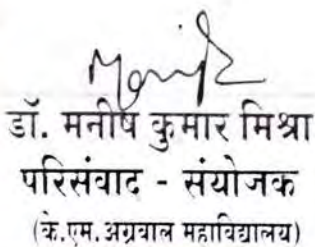 डॉ. मनीष कुमार मिश्रा
परिसंवाद - संयोजक
(के.एम.अग्रवाल महाविद्यालय)